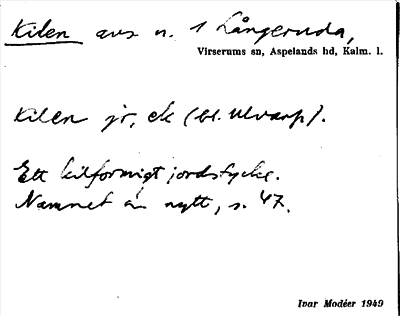 Kilen avs n. 1 Långeruda,
Virserums sn, Aspelands hd, Kalm. l.
Kilen jr, ek (bl. Ulvarp).
Ett kilformigt jordstycke.
Namnet är nytt, s. 47.
Ivar Modéer 1949